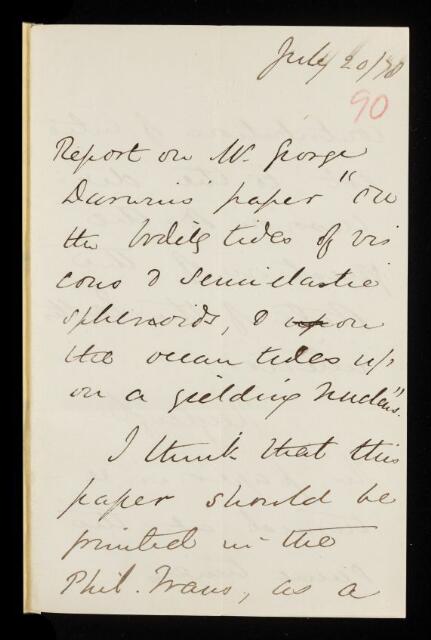 July 20/78
90
Report on Mr. George
Darwin's paper "on
the bodily tides of vis
cous & semi-elastic
spheroids, & up on
the ocean tides up
on a yielding nucleus".
I think that this
paper should be
printed in the
Phil. Trans, as a